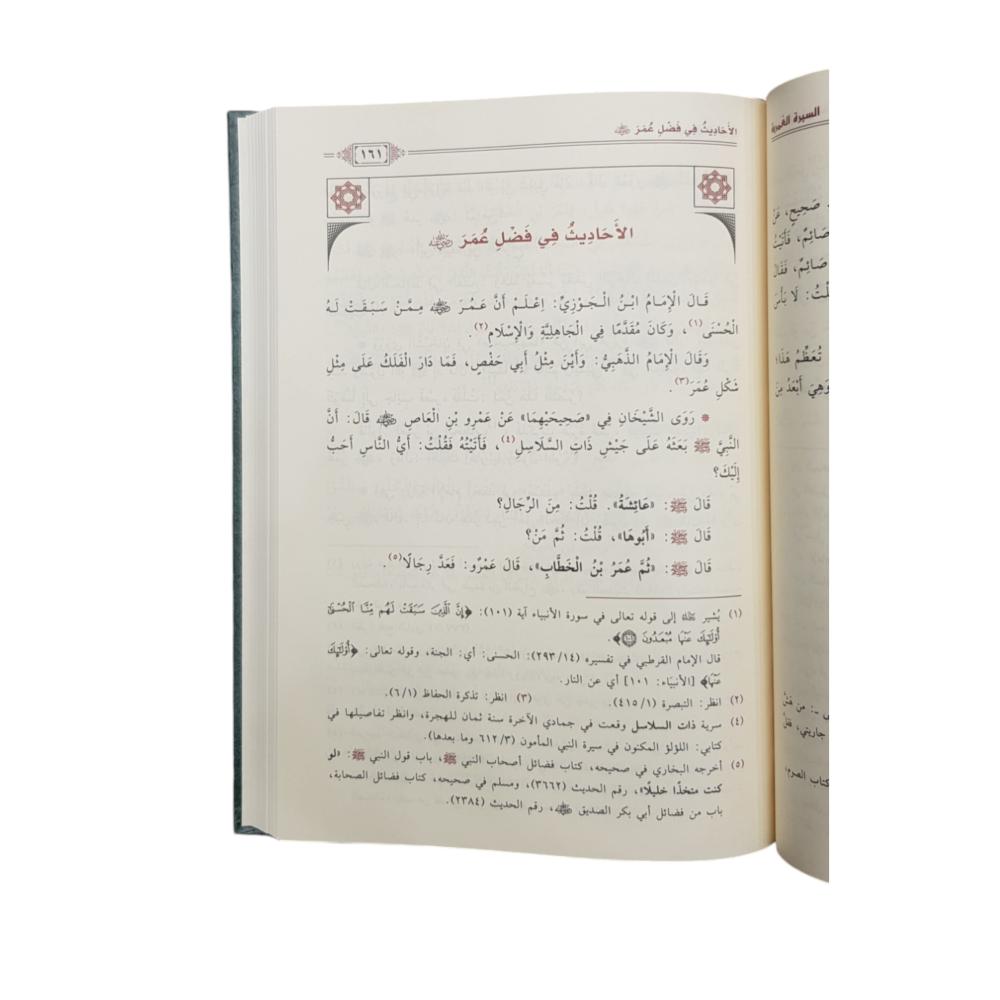 الأَحَادِيثُ فِي فَضْلِ عُمَرَ ﵁
١٦١
الأَحَادِيثُ فِي فَضْلِ عُمَرَ ﵁
قَالَ الْإِمَامُ ابْنُ الْجَوْزِيِّ: اِعْلَمْ أَنَّ عُمَرَ ﵁ مِمَّنْ سَبَقَتْ لَهُ
الْحُسْنَى(١)، وَكَانَ مُقَدَّمًا فِي الْجَاهِلِيَّةِ وَالْإِسْلَامِ(٢).
وَقَالَ الْإِمَامُ الذَّهَبِيُّ: وَأَيْنَ مِثْلُ أَبِي حَفْصٍ، فَمَا دَارَ الْفَلَكُ عَلَى مِثْلِ
شَكْلِ عُمَرَ(٣).
* رَوَى الشَّيْخَانِ فِي «صَحِيحَيْهِمَا» عَنْ عَمْرِو بْنِ الْعَاصِ ﵁ قَالَ: أَنَّ
النَّبِيَّ ﷺ بَعَثَهُ عَلَى جَيْشِ ذَاتِ السَّلَاسِلِ(٤)، فَأَتَيْتُهُ فَقُلْتُ: أَيُّ النَّاسِ أَحَبُّ
إِلَيْكَ؟
قَالَ ﷺ: «عَائِشَةُ». قُلْتُ: مِنَ الرِّجَالِ؟
قَالَ ﷺ: «أَبُوهَا»، قُلْتُ: ثُمَّ مَنْ؟
قَالَ ﷺ: «ثُمَّ عُمَرُ بْنُ الْخَطَّابِ»، قَالَ عَمْرٌو: فَعَدَّ رِجَالًا(٥).
(١) يُشير ﵀ إلى قوله تعالى في سورة الأنبياء آية (١٠١): ﴿إِنَّ الَّذِينَ سَبَقَتْ لَهُم مِّنَّا الْحُسْنَىٰ
أُوْلَٰئِكَ عَنْهَا مُبْعَدُونَ ١٠١﴾.
قال الإمام القرطبي في تفسيره (٢٩٣/١٤): الحسنى: أي: الجنة، وقوله تعالى: ﴿أُوْلَٰئِكَ
عَنْهَا﴾ [الأنبيَاء: ١٠١] أي عن النار.
(٢) انظر: التبصرة (٤١٥/١). (٣) انظر: تذكرة الحفاظ (٦/١).
(٤) سرية ذات السلاسل وقعت في جمادي الآخرة سنة ثمان للهجرة، وانظر تفاصيلها في
كتابي: اللؤلؤ المكنون في سيرة النبي المأمون (٦١٢/٣ وما بعدها).
(٥) أخرجه البخاري في صحيحه، كتاب فضائل أصحاب النبي ﷺ، باب قول النبي ﷺ: «لو
كنت متخذًا خليلًا»، رقم الحديث (٣٦٦٢)، ومسلم في صحيحه، كتاب فضائل الصحابة،
باب من فضائل أبي بكر الصديق ﵁، رقم الحديث (٢٣٨٤).
السيرة العُمرية
صَحِيحٍ، عَنْ
صَائِمٌ، فَأَتَيْتُ
صَائِمٌ، فَقَالَ
قُلْتُ: لَا بَأْسَ
تُعَظِّمُ هَذَا؛
وَهِيَ أَبْعَدُ مِنَ
جاريتي، فقَلَّ
كتاب الصوم،